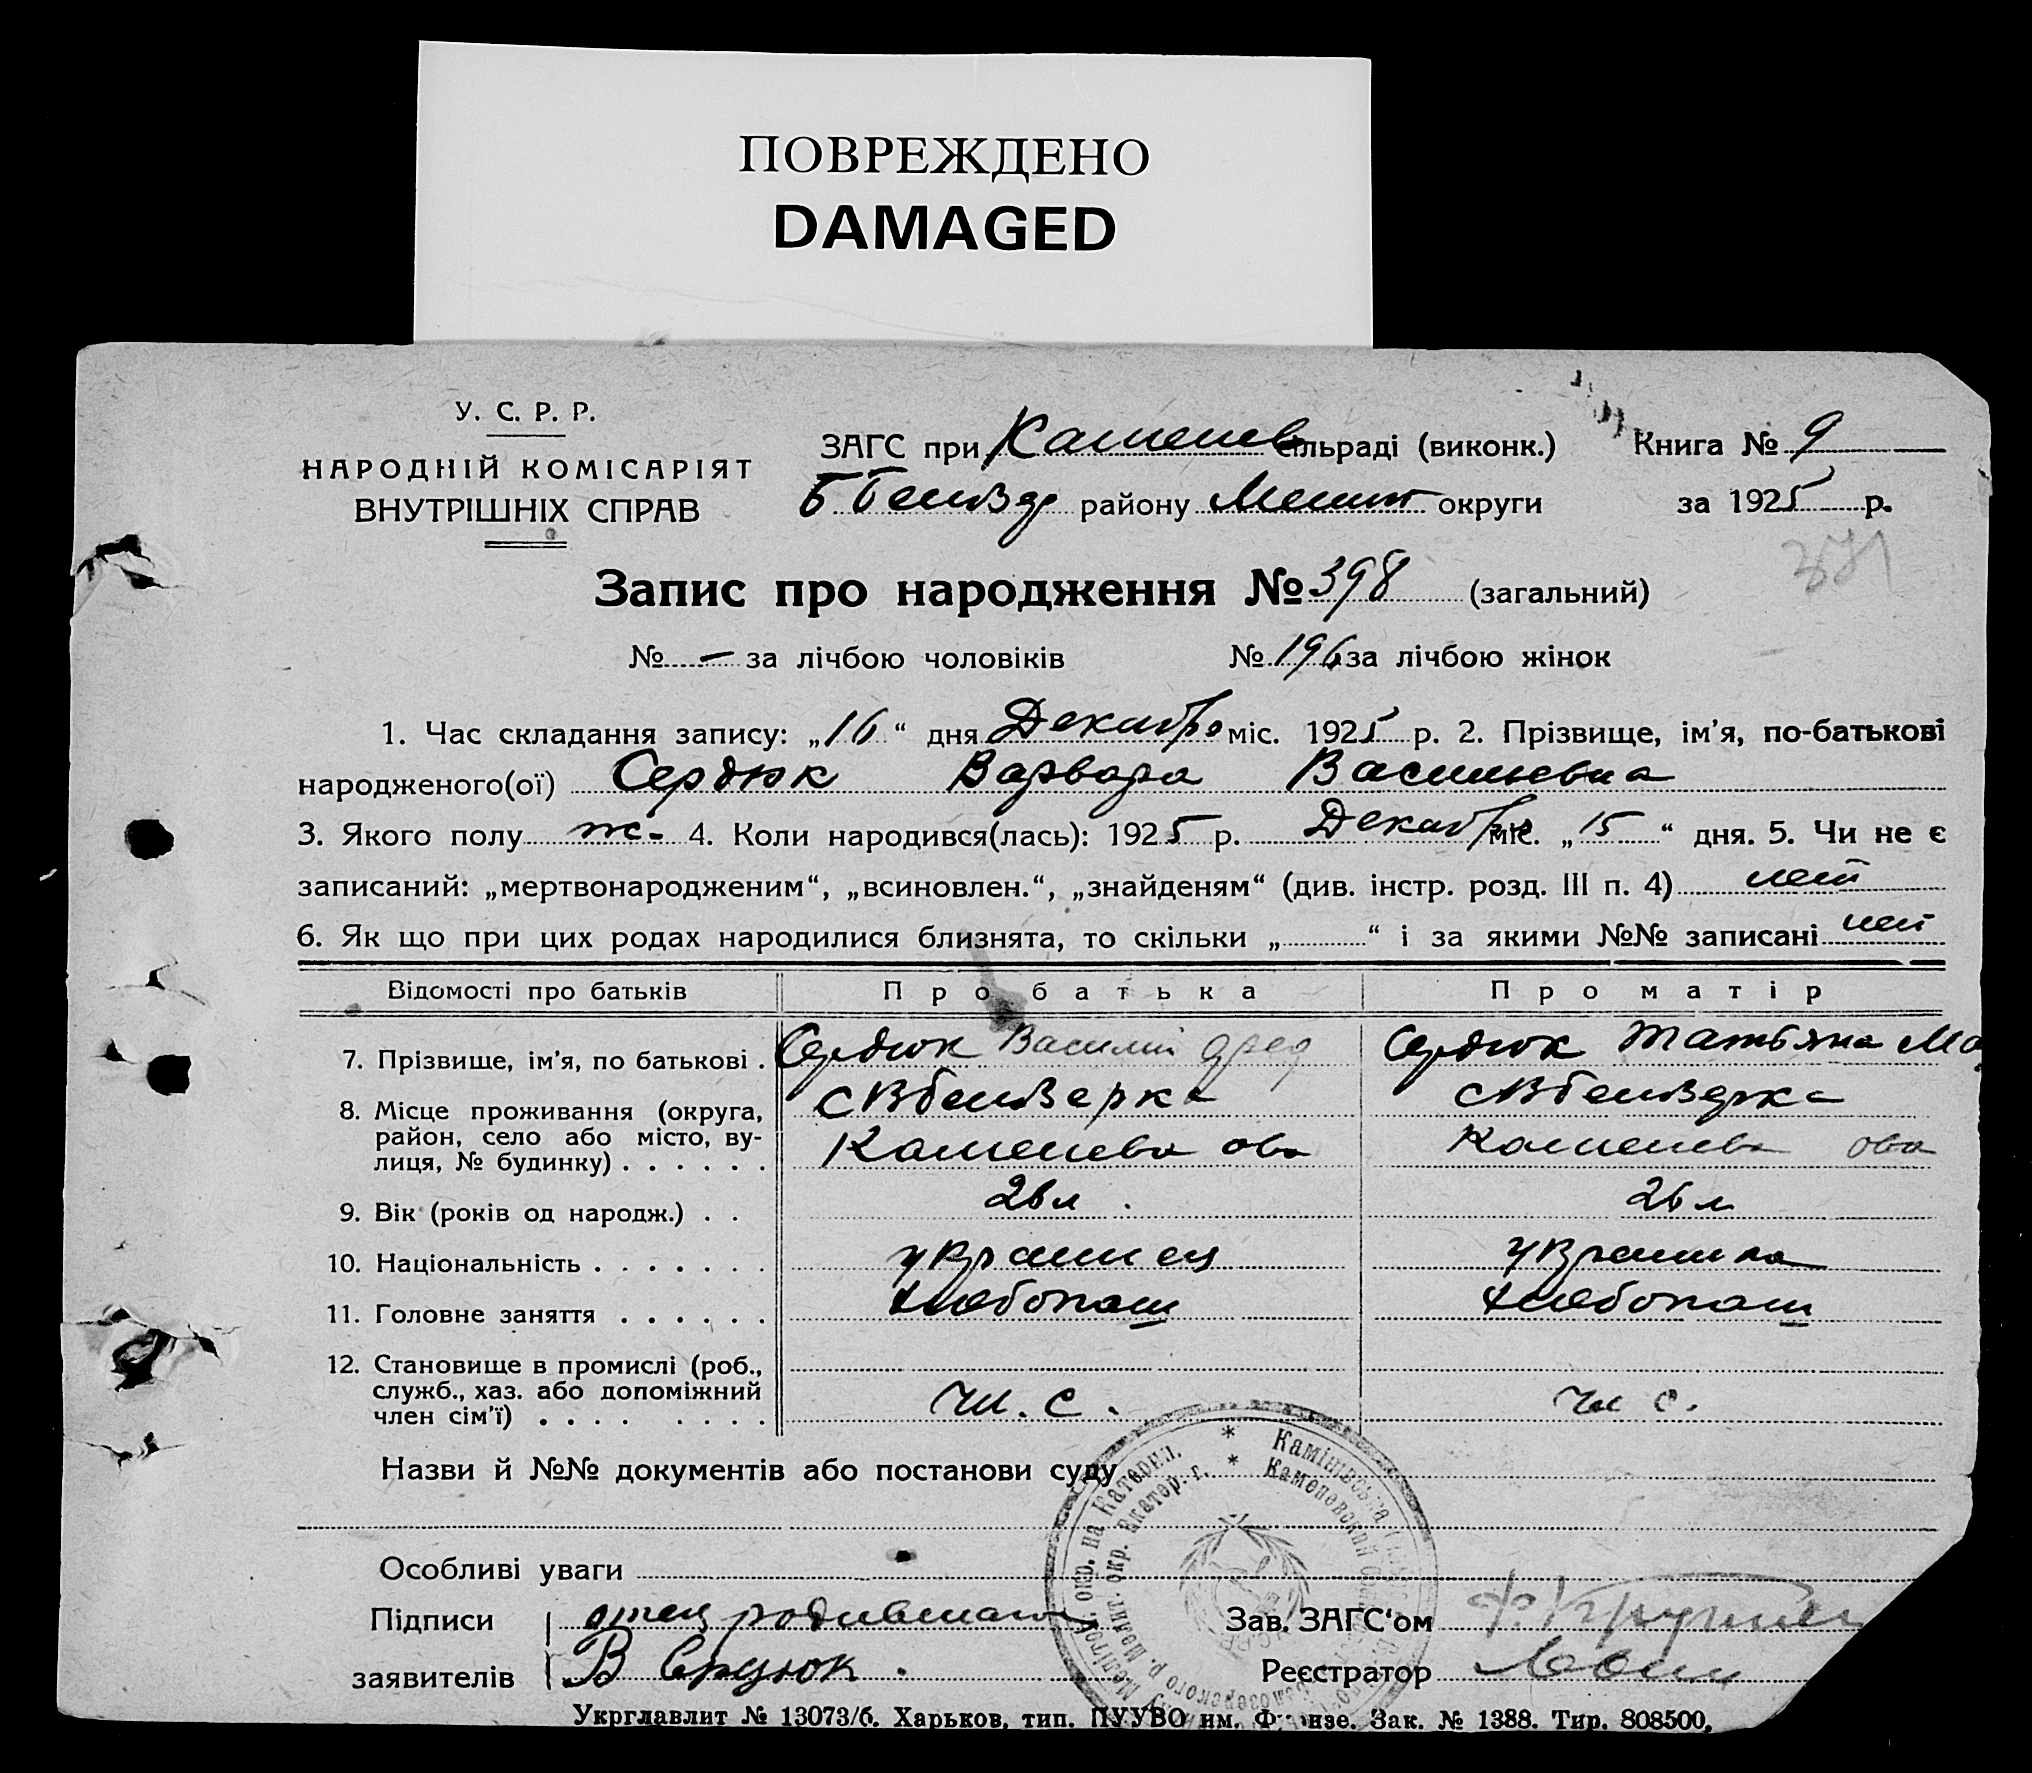 ПОВРЕЖДЕНО
DAMAGED
У. С. Р. Р.
НАРОДНІЙ КОМІСАРІЯТ
ВНУТРІШНІХ СПРАВ
ЗАГС при Каменев сільраді (виконк.) Книга № 9
району Мелит округи за 1925 р.
371
Запис про народження № 398 (загальний)
№ – за лічбою чоловіків № 196 за лічбою жінок
1. Час складання запису: „16“ дня Декабр міс. 1925 р. 2. Прізвище, ім'я, по-батькові
народженого(ої) Сердюк Варвара Васильевна
3. Якого полу ж. 4. Коли народився(лась): 1925 р. Декабр міс. „15“ дня. 5. Чи не є
записаний: „мертвонародженим“, „всиновлен.“, „знайденям“ (див. інстр. розд. III п. 4) нет
6. Як що при цих родах народилися близнята, то скільки „ “ і за якими №№ записані нет
Відомості про батьків Про батька Про матір
7. Прізвище, ім'я, по батькові . Сердюк Василий Сердюк Татьяна Ма
8. Місце проживання (округа,
район, село або місто, ву-
лиця, № будинку) . . . . . . Каменева Каменева
9. Вік (років од народж.) . . 26 л. 26 л
10. Національність . . . . . . . украинец украинка
11. Головне заняття . . . . . . хлебопаш хлебопаш
12. Становище в промислі (роб.,
служб., хаз. або допоміжний
член сім'ї) . . . . . . . . чл. с. чл с.
Назви й №№ документів або постанови суду
Особливі уваги
Підписи отец Зав. ЗАГС'ом
заявителів В Сердюк. Реєстратор
Укрглавлит № 13073/б. Харьков, тип. ПУУВО им. Фрунзе. Зак. № 1388. Тир. 808500.